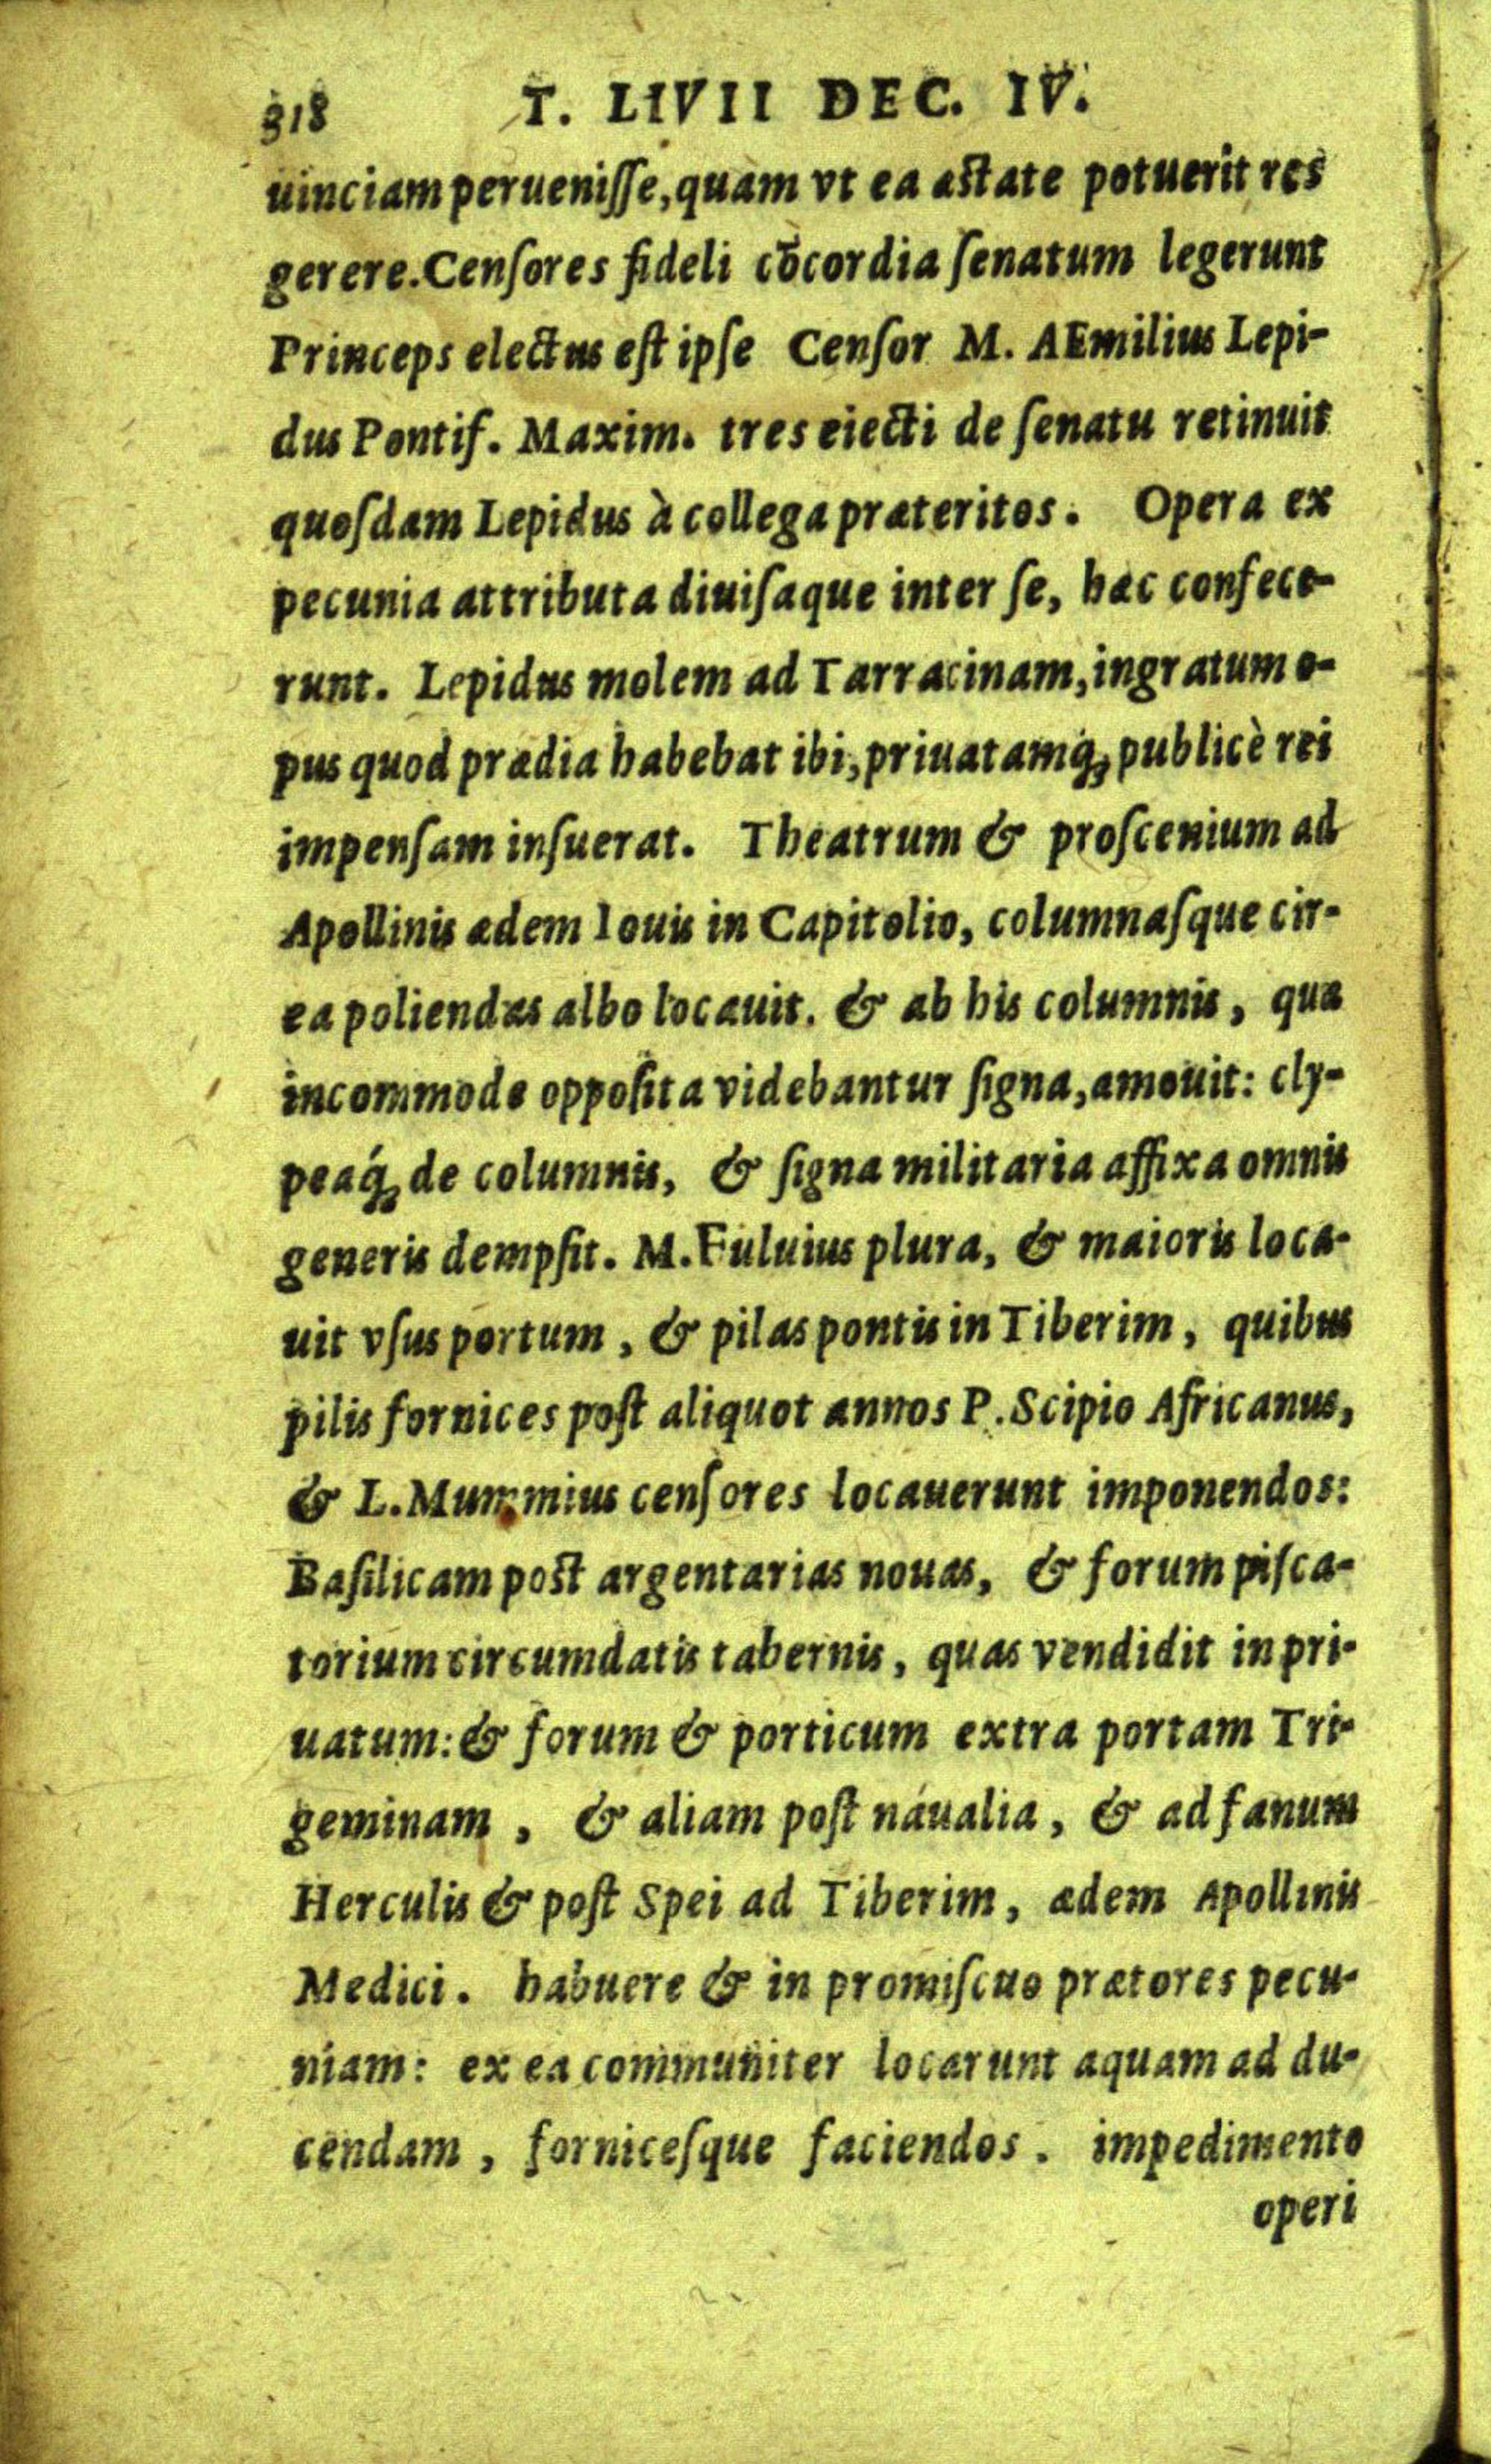 318 T. LIVII DEC. IV.
uinciam peruenisse, quam vt ea æstate potuerit res
gerere. Censores fideli cōcordia senatum legerunt
Princeps electus est ipse Censor M. AEmilius Lepi-
dus Pontif. Maxim. tres eiecti de senatu retinuit
quosdam Lepidus à collega præteritos. Opera ex
pecunia attributa diuisaque inter se, hæc confece-
runt. Lepidus molem ad Tarracinam, ingratum o-
pus quod prædia habebat ibi, priuatamq́; publicè rei
impensam insuerat. Theatrum & proscenium ad
Apollinis ædem Iouis in Capitolio, columnasque cir-
ea poliendas albo locauit. & ab his columnis, quæ
incommode opposita videbantur signa, amouit: cly-
peaq́; de columnis, & signa militaria affixa omnis
generis dempsit. M. Fuluius plura, & maioris loca-
uit vsus portum, & pilas pontis in Tiberim, quibus
pilis fornices post aliquot annos P. Scipio Africanus,
& L. Mummius censores locauerunt imponendos:
Basilicam post argentarias nouas, & forum pisca-
torium circumdatis tabernis, quas vendidit in pri-
uatum: & forum & porticum extra portam Tri-
geminam, & aliam post naualia, & ad fanum
Herculis & post Spei ad Tiberim, ædem Apollinis
Medici. habuere & in promiscuo prætores pecu-
niam: ex ea communiter locarunt aquam ad du-
cendam, fornicesque faciendos. impedimento
operi